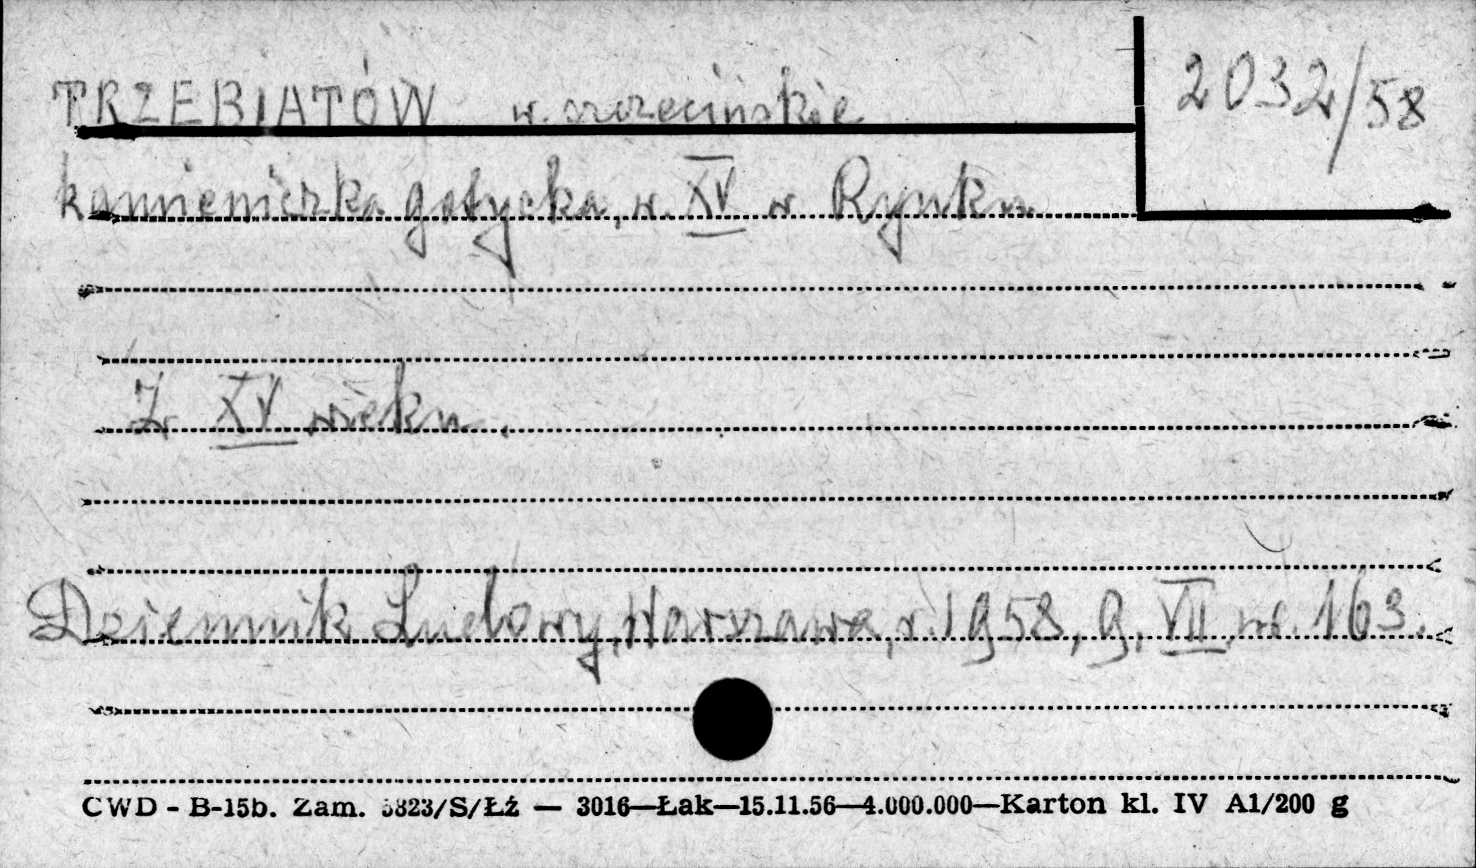 TRZEBIATÓW w. szczecińskie
2032/58
kamieniczka gotycka, w. XV w Rynku
Z XV wieku.
Dziennik Ludowy, Warszawa, r. 1958, 9. VII, nr. 163.
CWD - B-15b. Zam. 5823/S/Łź — 3016—Łak—15.11.56—4.000.000—Karton kl. IV A1/200 g